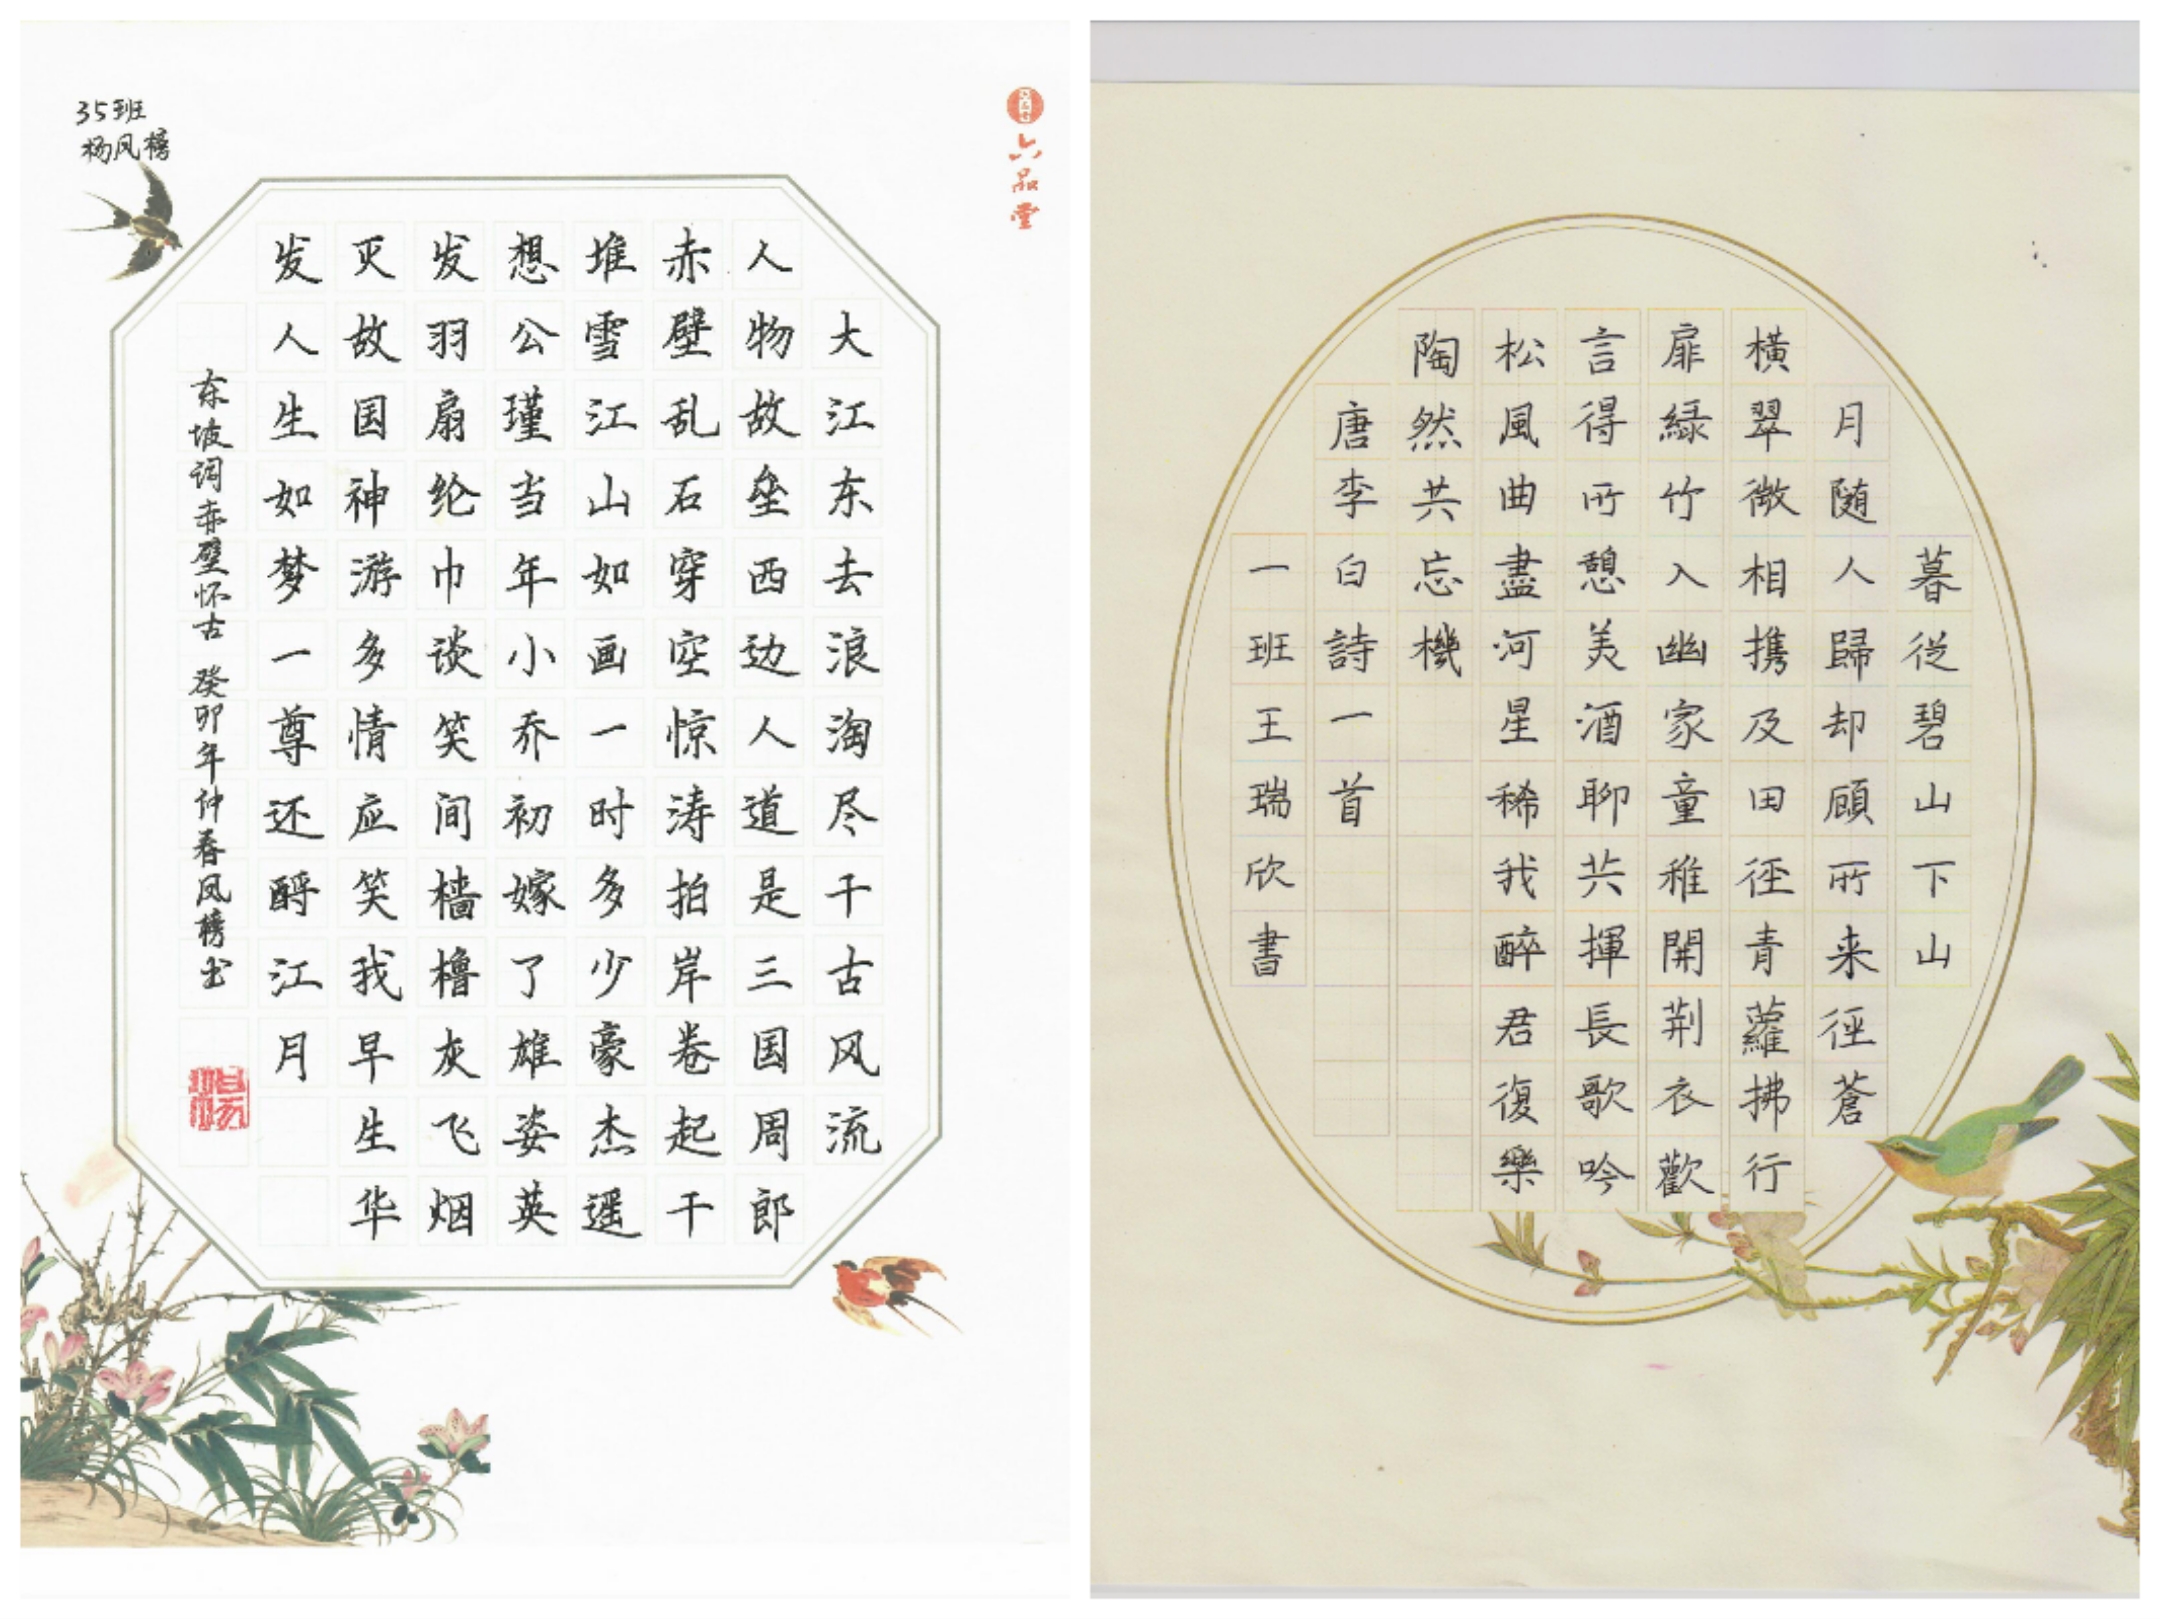 35班
杨凤榜
六品堂
大江东去浪淘尽千古风流
人物故垒西边人道是三国周郎
赤壁乱石穿空惊涛拍岸卷起千
堆雪江山如画一时多少豪杰遥
想公瑾当年小乔初嫁了雄姿英
发羽扇纶巾谈笑间樯橹灰飞烟
灭故国神游多情应笑我早生华
发人生如梦一尊还酹江月
东坡词赤壁怀古 癸卯年仲春凤榜书
暮従碧山下山
月随人歸却顧所来徑蒼
横翠微相携及田徑青蘿拂行
扉緑竹入幽家童稚開荆衣歡
言得所憩美酒聊共揮長歌吟
松風曲盡河星稀我醉君復樂
陶然共忘機
唐李白詩一首
一班王瑞欣書